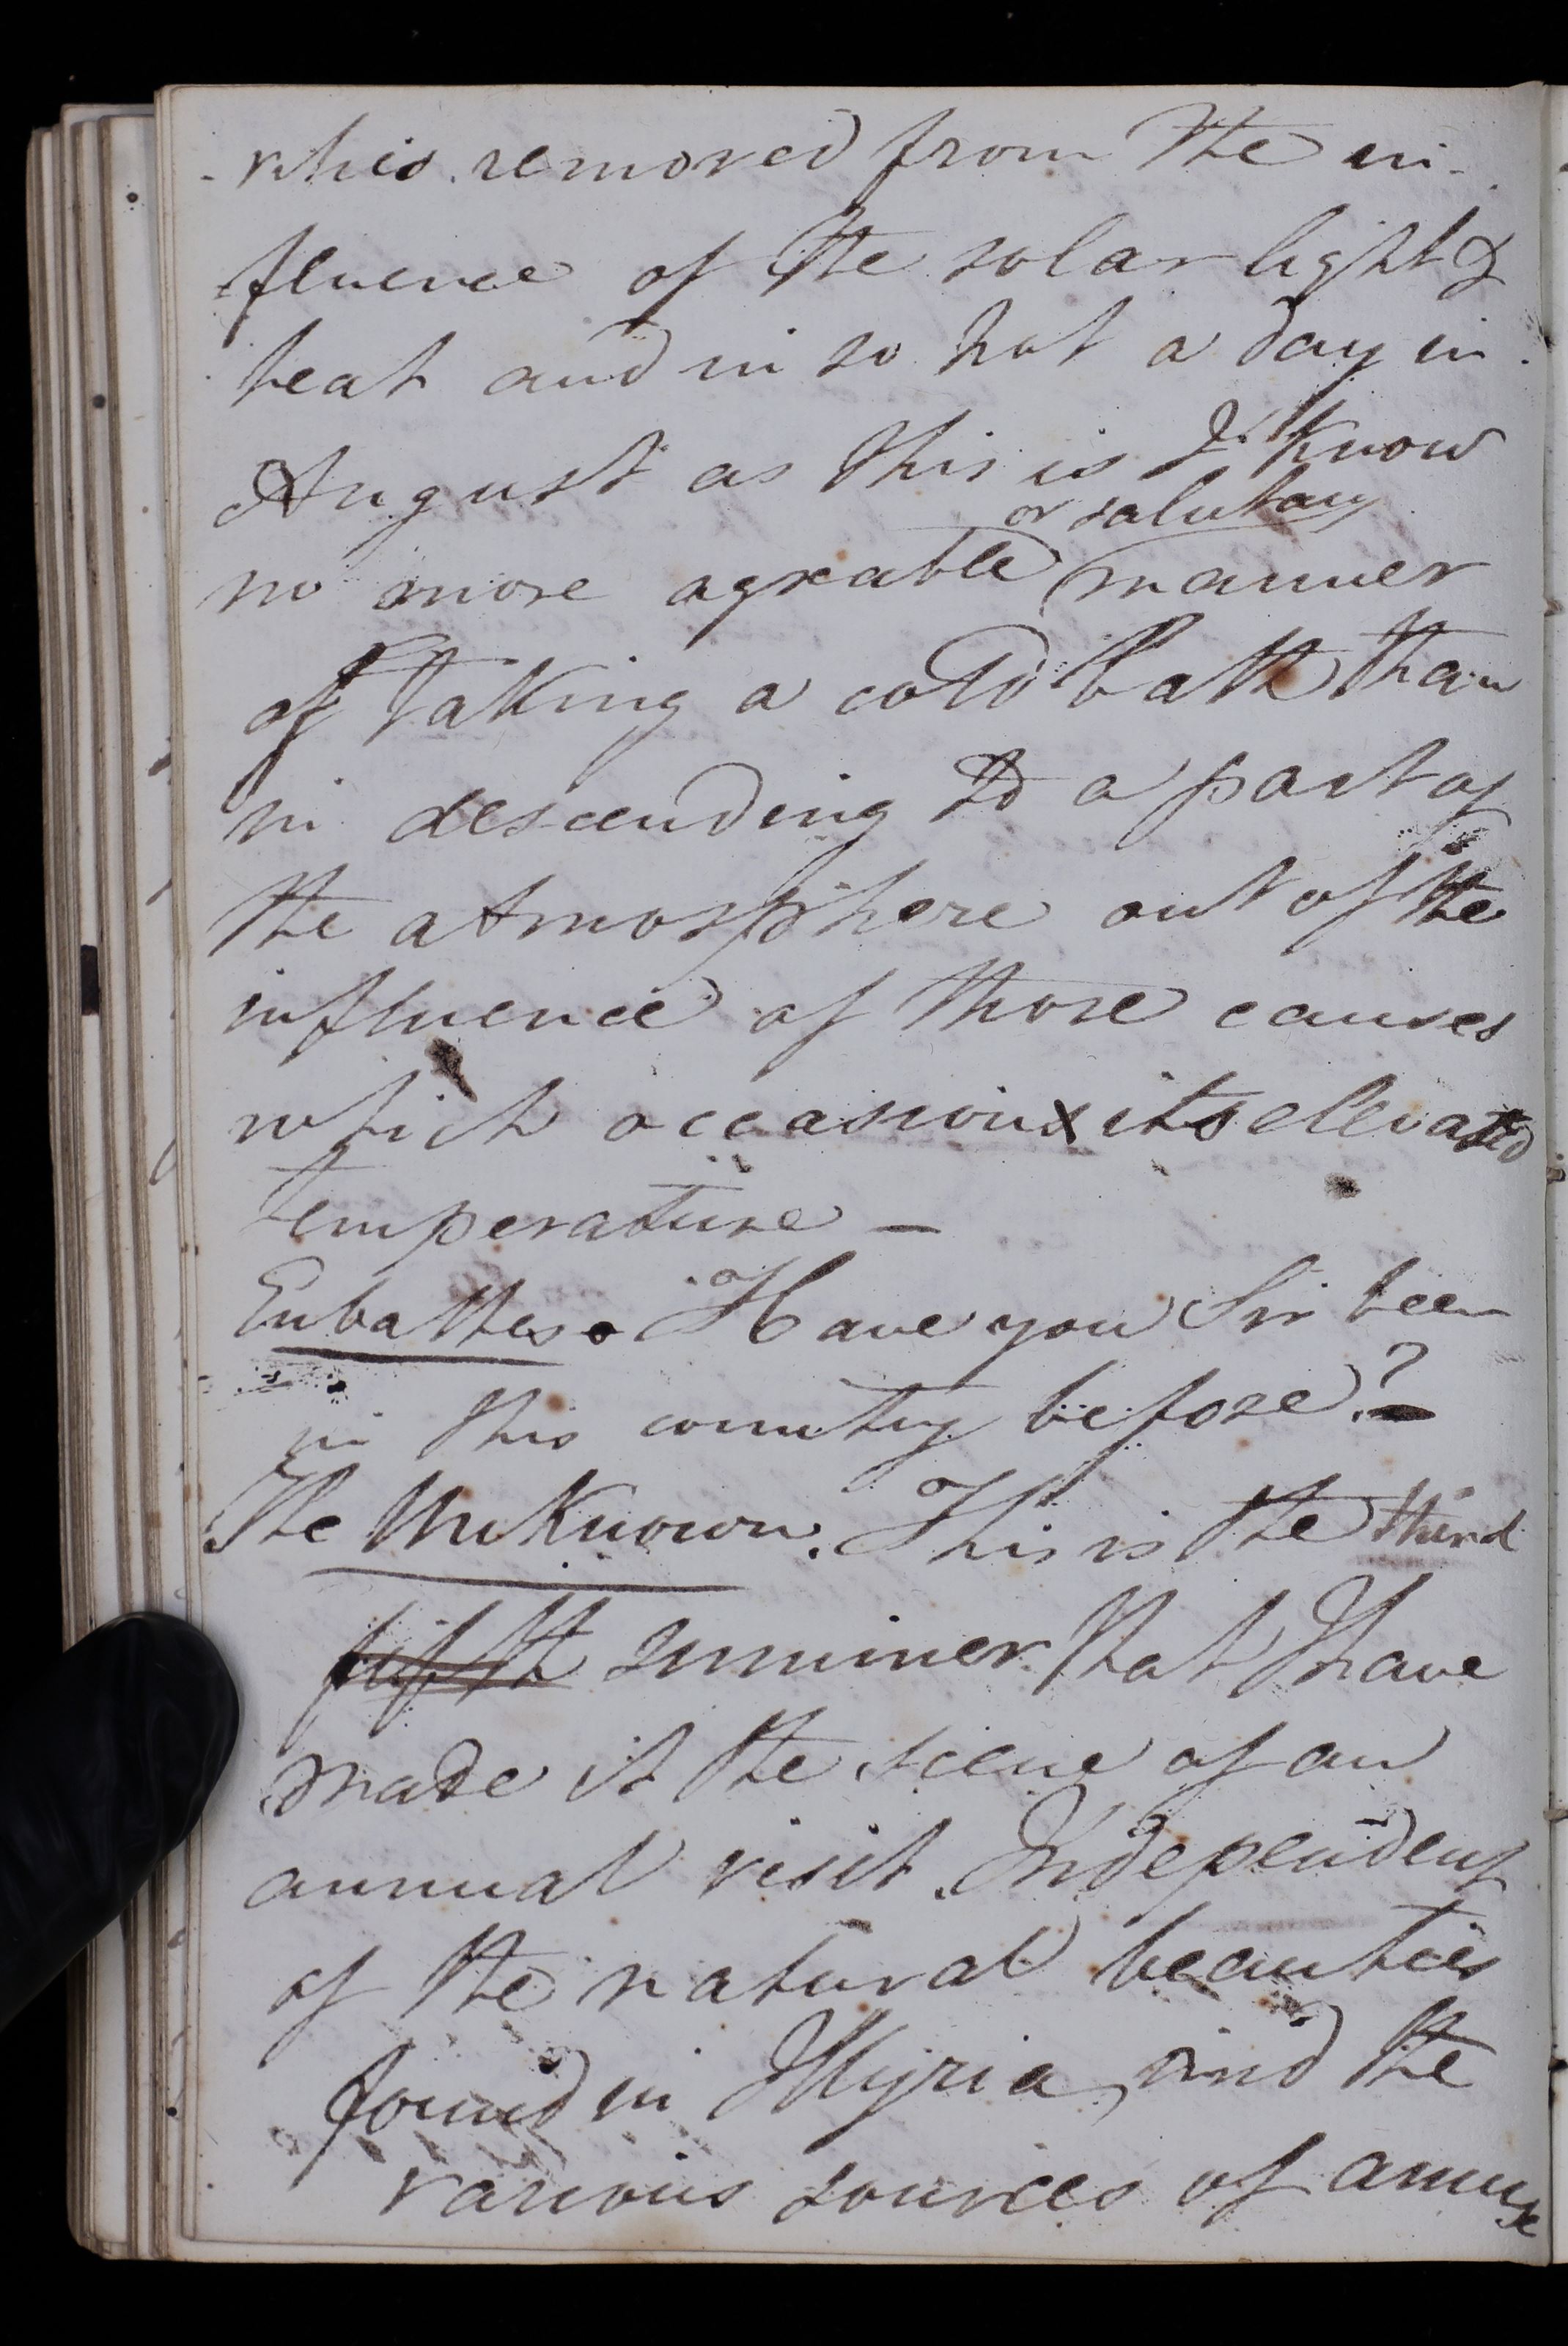 removed from the in-
fluence of the solar light &
heat and in so hot a day in
August as this is I know
or salutary
no more agreable manner
of taking a cold bath than
in descending to a part of
the atmosphere out of the
influence of those causes
which occasion its elevated
temperature —
Eubathes. Have you Sir been
in this country before? —
The Unknown. This is the third
fifth summer that I have
made it the scene of an
annual visit. Independent
of the natural beauties
found in Illyria, and the
various sources of amuse